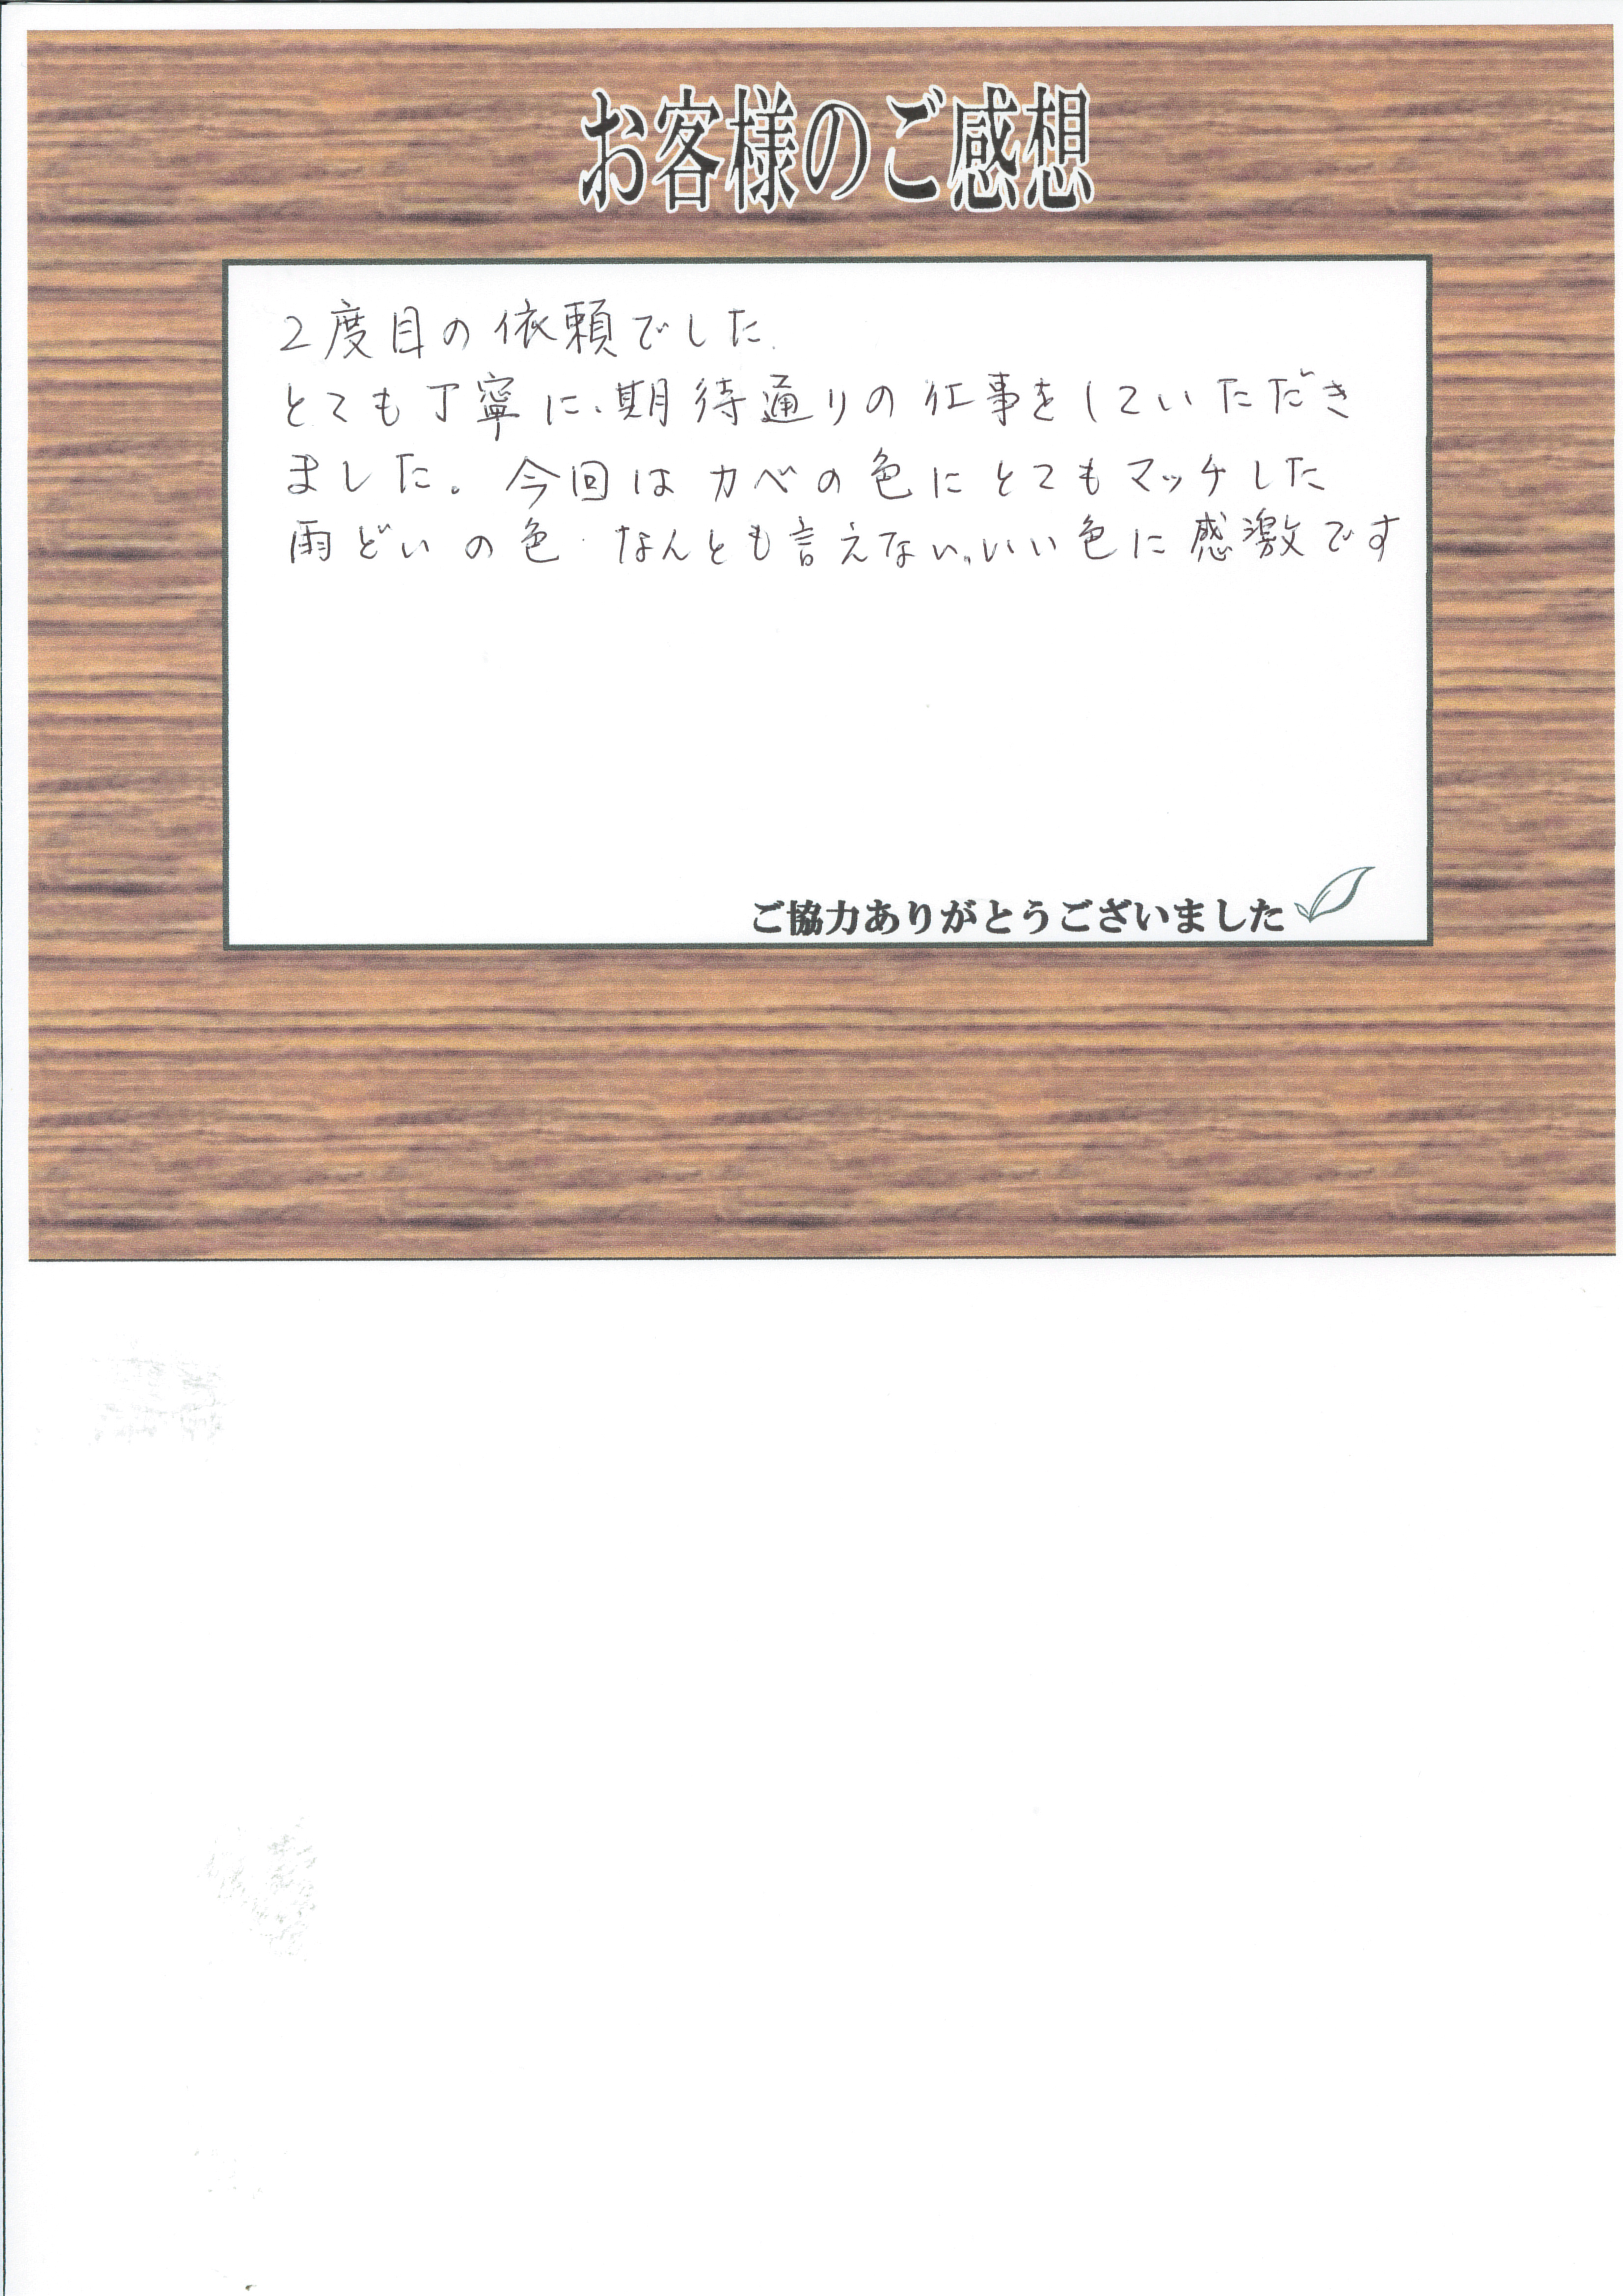 お客様のご感想
2度目の依頼でした.
とても丁寧に、期待通りの仕事をしていただき
ました。今回はカベの色にとてもマッチした
雨どいの色・なんとも言えない、いい色に感激です
ご協力ありがとうございました